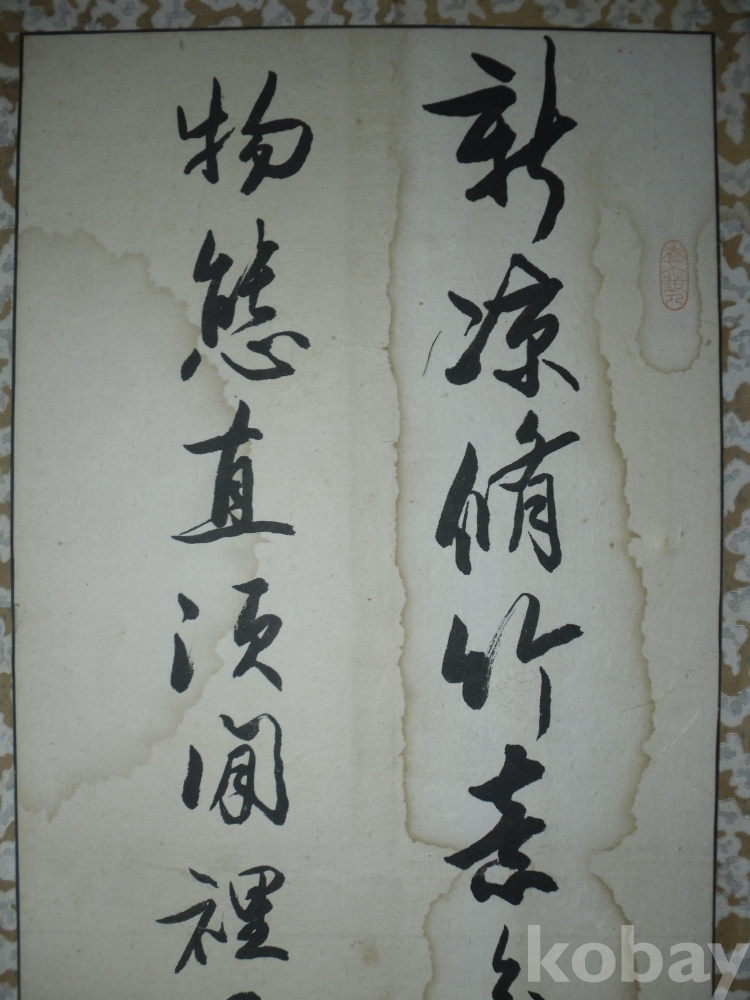 新凉脩竹素
物態直須閒裡
kobay